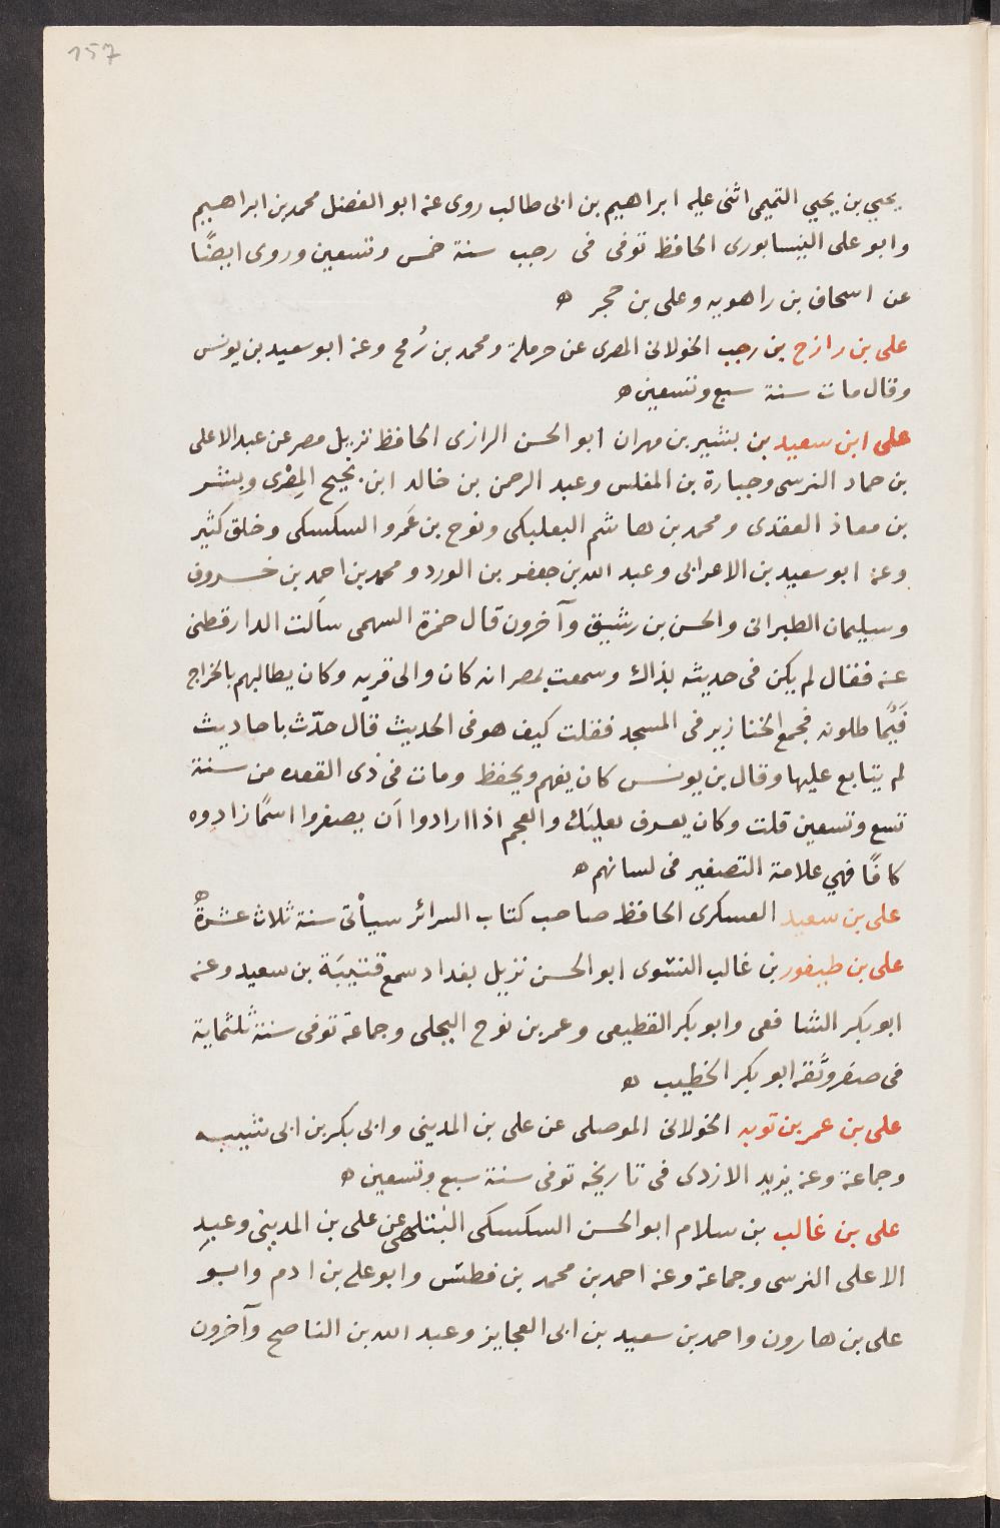 157
يحيي بن يحيي التميمى اثنى عليه ابراهيم بن ابى طالب روى عنه ابو الفضل محمد بن ابراهيم
وابو على النيسابورى الحافظ توفى فى رجب سنة خمس وتسعين وروى ايضًا
عن اسحاق بن راهويه وعلى بن حجر ه
على بن رازح بن رجب الخولانى المصرى عن حرملة ومحمد بن رُمح وعنه ابو سعيد بن يونس
وقال مات سنة سبع وتسعين ه
على ابن سعيد بن بشير بن مهران ابو الحسن الرازى الحافظ نزيل مصر عن عبد الاعلى
بن حماد النرسى وجبارة بن المغلس وعبد الرحمن بن خالد ابن نجيح المِصْرى وبشر
بن معاذ العقدى ومحمد بن هاشم البعلبكى ونوح بن عَمرو السكسكى وخلق كثير
وعنه ابو سعيد بن الاعرابى وعبد الله بن جعفر بن الورد ومحمد بن احمد بن خروف
وسليمان الطبرانى والحسن بن رشيق وآخرون قال حمزة السهمى سألت الدارقطنى
عنه فقال لم يكن فى حديثه بذاك وسمعت بمصر انه كان والى قريه وكان يطالبهم بالخراج
فَيُماطلونه فجمع الخنازير فى المسجد فقلت كيف هو فى الحديث قال حدّث باحاديث
لم يتابع عليها وقال بن يونس كان يفهم ويحفظ ومات فى ذى القعده من سنة
تسع وتسعين قلت وكان يعرف بعليَك والعجم اذا ارادوا اَن يصغروا اسمًا زادوه
كافًا فهي علامة التصغير فى لسانهم ه
على بن سعيد العسكرى الحافظ صاحب كتاب السرائر سيأتى سنة ثلاث عشرة ه
على بن طيفور بن غالب النشوى ابو الحسن نزيل بغداد سمع قتيبَة بن سعيد وعنه
ابو بكر الشافعى وابو بكر القطيعى وعمر بن نوح البجلى وجماعة توفى سنة ثلثماية
فى صفر وثَّقه ابو بكر الخطيب ه
على بن عمر بن توبه الخولانى الموصلى عن على بن المدينى وابى بكر بن ابى شيبه
وجماعة وعنه يزيد الازدى فى تاريخه توفى سنة سبع وتسعين ه
على بن غالب بن سلام ابو الحسن السكسكى البَتَلهى عن على بن المدينى وعبدِ
الاعلى النرسى وجماعة وعنه احمد بن محمد بن فطيس وابو على بن ادم وابو
على بن هارون واحمد بن سعيد بن ابى العجايز وعبد الله بن الناصح وآخرون